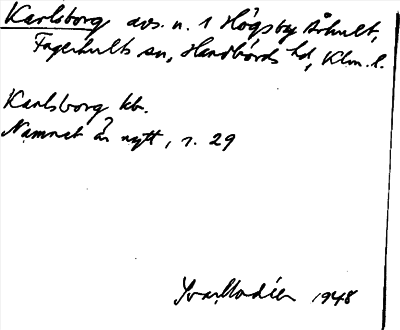 Karlsborg avs. n. 1 Högsby Århult,
Fagerhults sn, Handbörds hd, Klm. l.
Karlsborg kb.
Namnet är nytt, s. 29
Ivar Modéer 1948